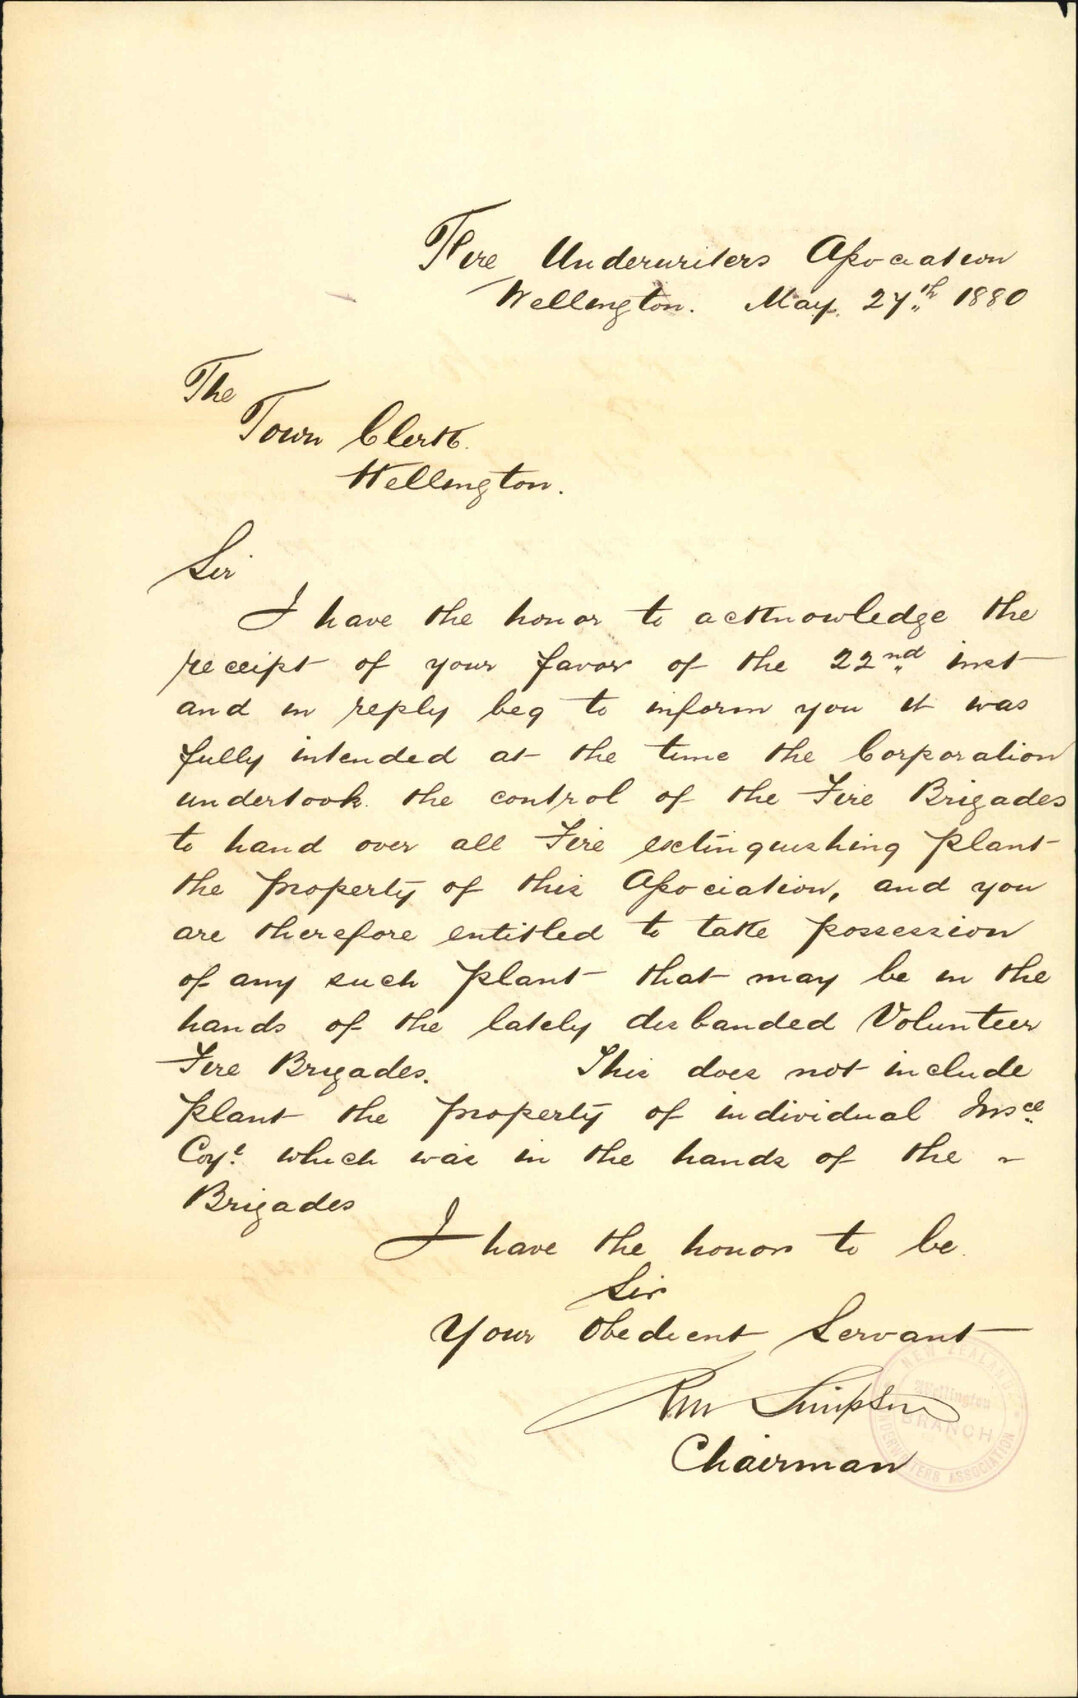 Fire Underwriters Association
Wellington. May. 27th 1880
The
Town Clerk.
Wellington.
Sir
I have the honor to acknowledge the
receipt of your favor of the 22nd inst
and in reply beg to inform you it was
fully intended at the time the Corporation
undertook the control of the Fire Brigades
to hand over all Fire extinguishing plant
the property of this Association, and you
are therefore entitled to take possession
of any such plant that may be in the
hands of the lately disbanded Volunteer
Fire Brigades. This does not include
plant the property of individual Insce
Coys. which was in the hands of the
Brigades
I have the honor to be.
Sir
Your Obedient Servant
Simpson
Chairman
NEW ZEALAND
Wellington
BRANCH
UNDERWRITERS ASSOCIATION